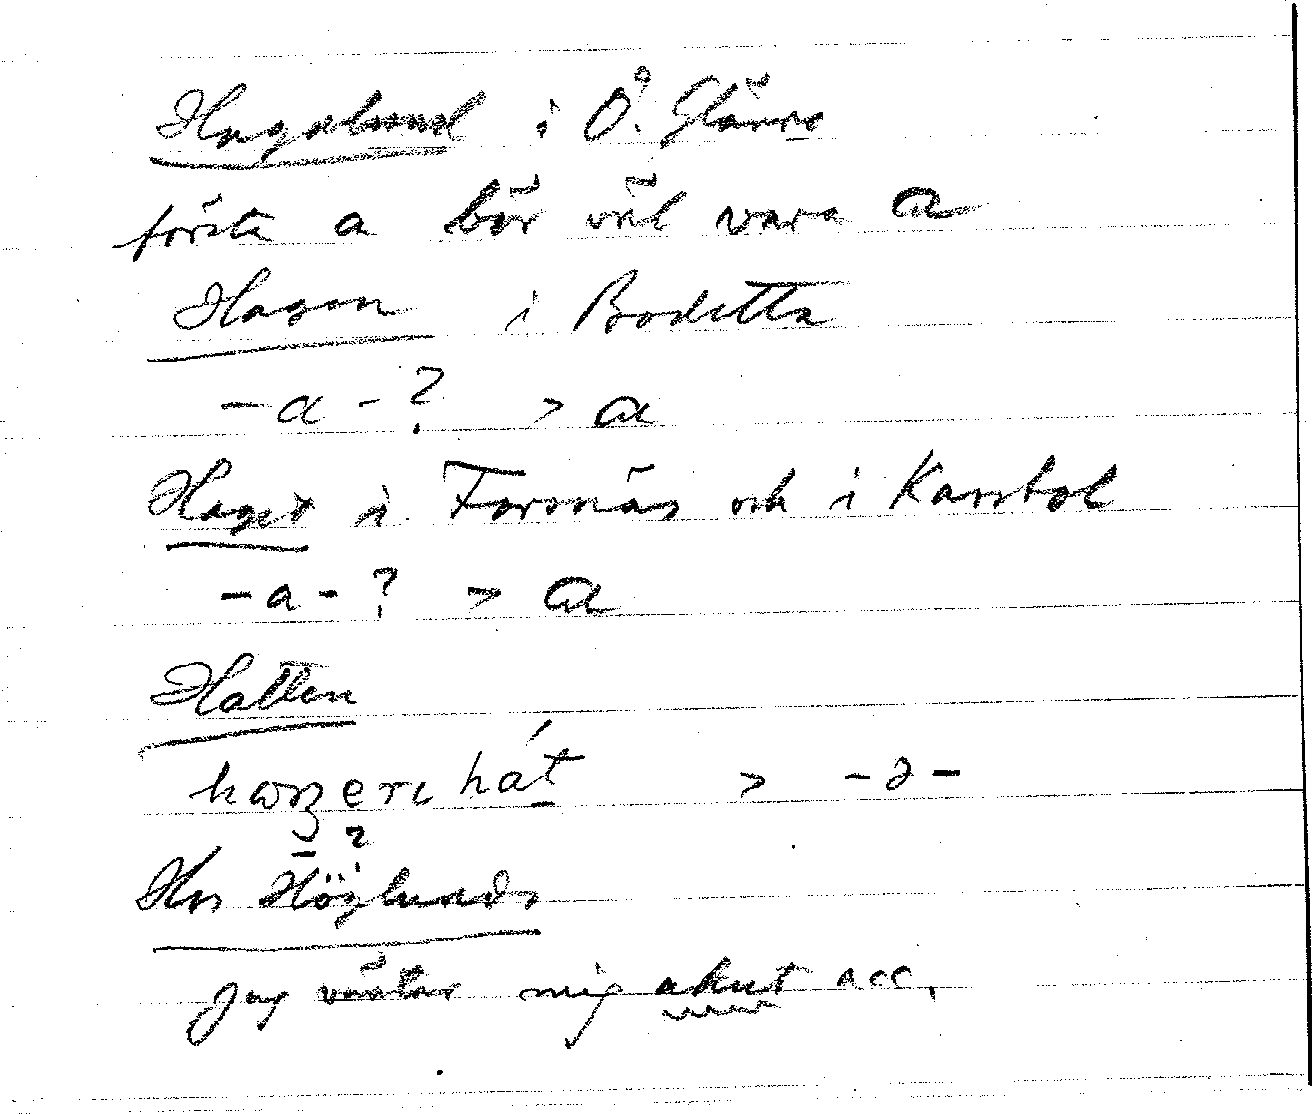 Hagalund i Ö. Glänne
första a bör väl vara a
Hagen i Bodetta
-a-? > a
Haget i Forsnäs och i Karrbol
-a-? > a
Hatten
hát > -ə-
Hos Höglunds
jag väntar mig akut acc.